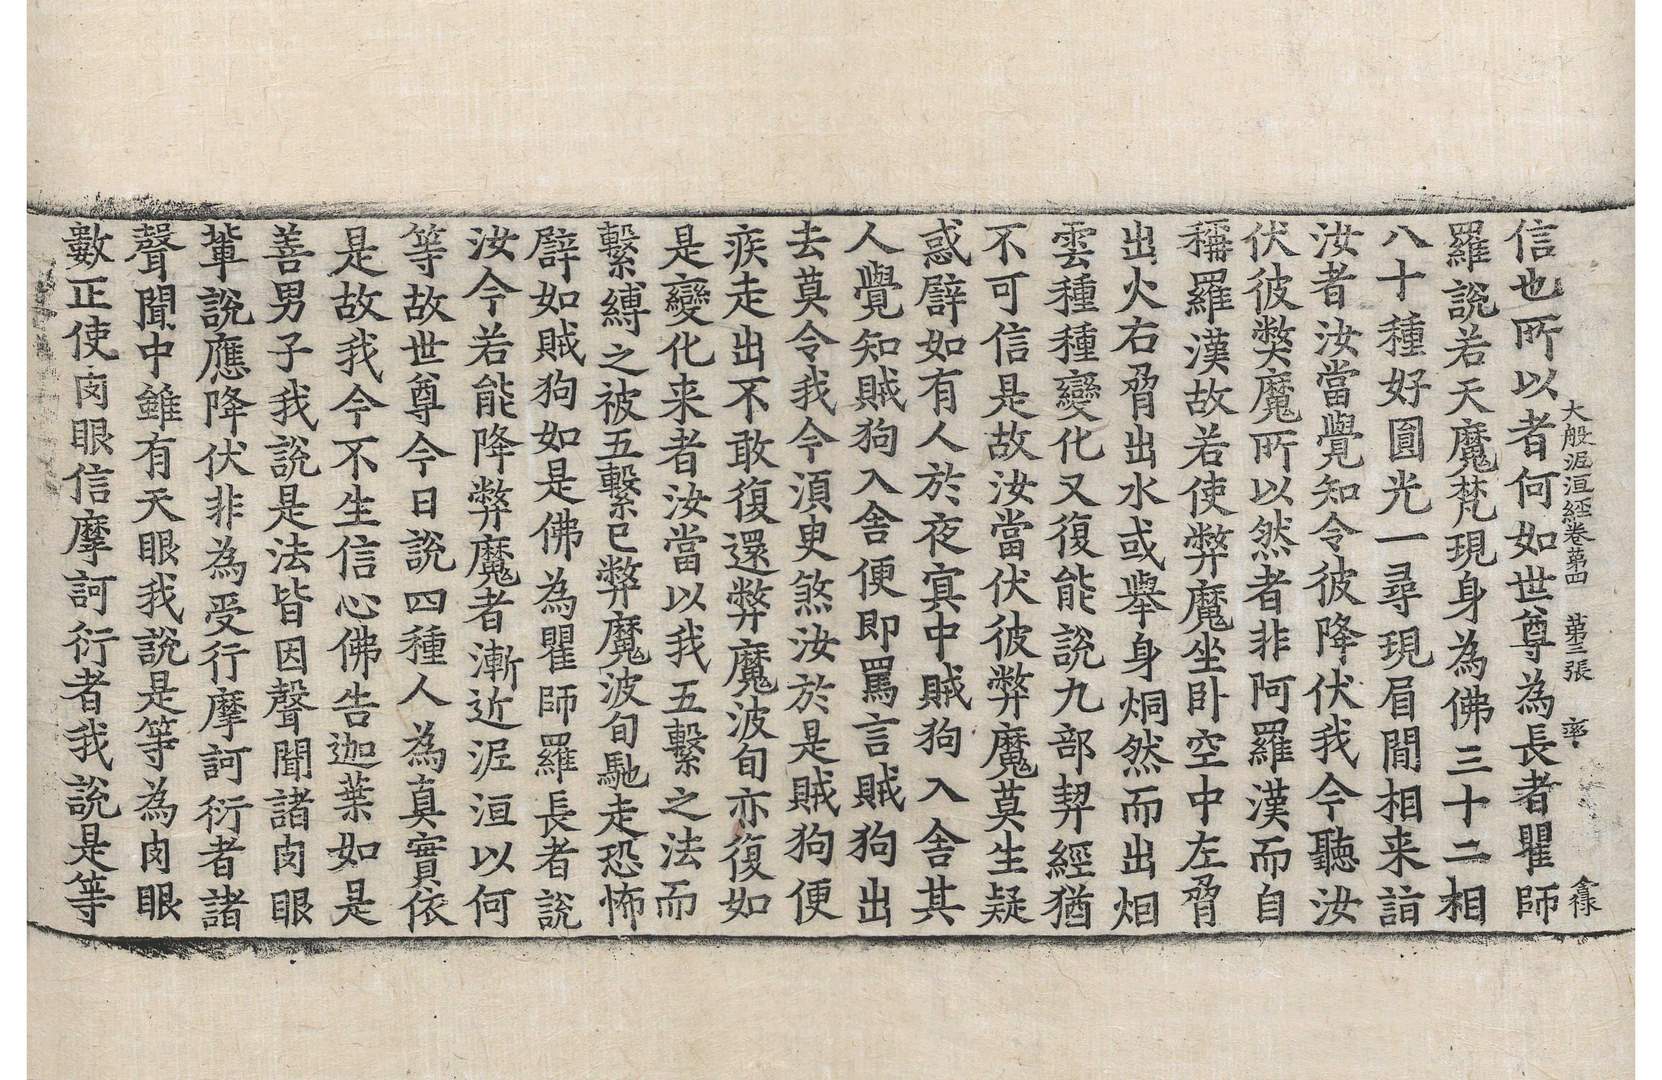 大般泥洹經卷第四　第三張　率　金祿
信也所以者何如世尊為長者瞿師
羅說若天魔梵現身為佛三十二相
八十種好圎光一尋現眉間相来詣
汝者汝當覺知令彼降伏我今聽汝
伏彼弊魔所以然者非阿羅漢而自
稱羅漢故若使弊魔坐卧空中左脅
出火右脅出水或舉身烔然而出烟
雲種種變化又復能說九部契經猶
不可信是故汝當伏彼弊魔莫生疑
惑譬如有人於夜㝠中賊狗入舍其
人覺知賊狗入舍便即罵言賊狗出
去莫令我今湏更煞汝於是賊狗便
疾走出不敢復還弊魔波旬亦復如
是變化来者汝當以我五繫之法而
繫縛之被五繫已弊魔波旬馳走恐怖
譬如賊狗如是佛為瞿師羅長者說
汝今若能降弊魔者漸近泥洹以何
等故世尊今日說四種人為真實依
是故我今不生信心佛告迦葉如是
善男子我說是法皆因聲聞諸肉眼
輩說應降伏非為受行摩訶衍者諸
聲聞中雖有天眼我說是等為肉眼
數正使肉眼信摩訶衍者我說是等